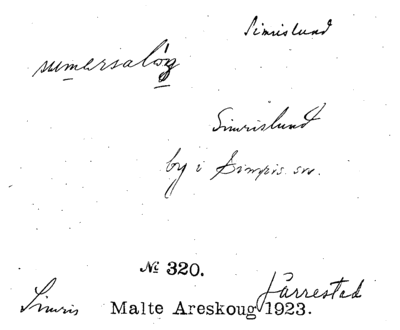 Simrislund
Simrislund
by i Simris sn.
№ 320.
Järrestad
Simris Malte Areskoug 1923.